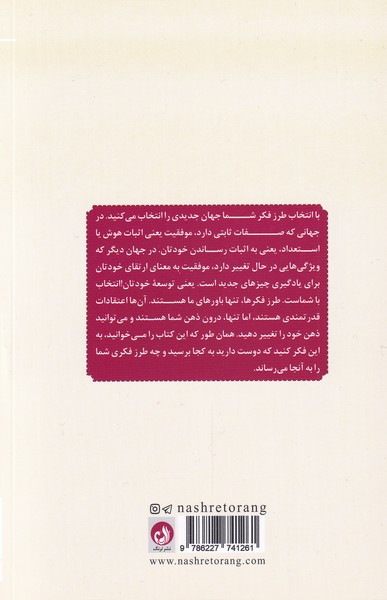 با انتخاب طرز فکر شما جهان جدیدی را انتخاب می‌کنید. در
جهانی که صفات ثابتی دارد، موفقیت یعنی اثبات هوش یا
استعداد، یعنی به اثبات رساندن خودتان. در جهان دیگر که
ویژگی‌هایی در حال تغییر دارد، موفقیت به معنای ارتقای خودتان
برای یادگیری چیزهای جدید است. یعنی توسعهٔ خودتان!انتخاب
با شماست. طرز فکرها، تنها باورهای ما هستند. آن‌ها اعتقادات
قدرتمندی هستند، اما تنها، درون ذهن شما هستند و می‌توانید
ذهن خود را تغییر دهید. همان طور که این کتاب را می‌خوانید، به
این فکر کنید که دوست دارید به کجا برسید و چه طرز فکری شما
را به آنجا می‌رساند.
nashretorang
نشر ترنگ
9 786227 741261
www.nashretorang.com